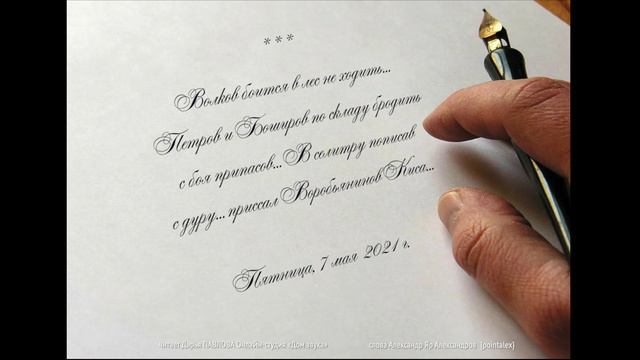 * * *
Волков боится в лес не ходить...
Петров и Боширов по складу бродить
с боя припасов... В селитру пописав
с дуру... приссал Воробьянинов Киса...
Пятница, 7 мая 2021 г.
читает Дарья ПАВЛОВА Онлайн-студия «Дом звука»
слова Александр Яр Александров (pointalex)